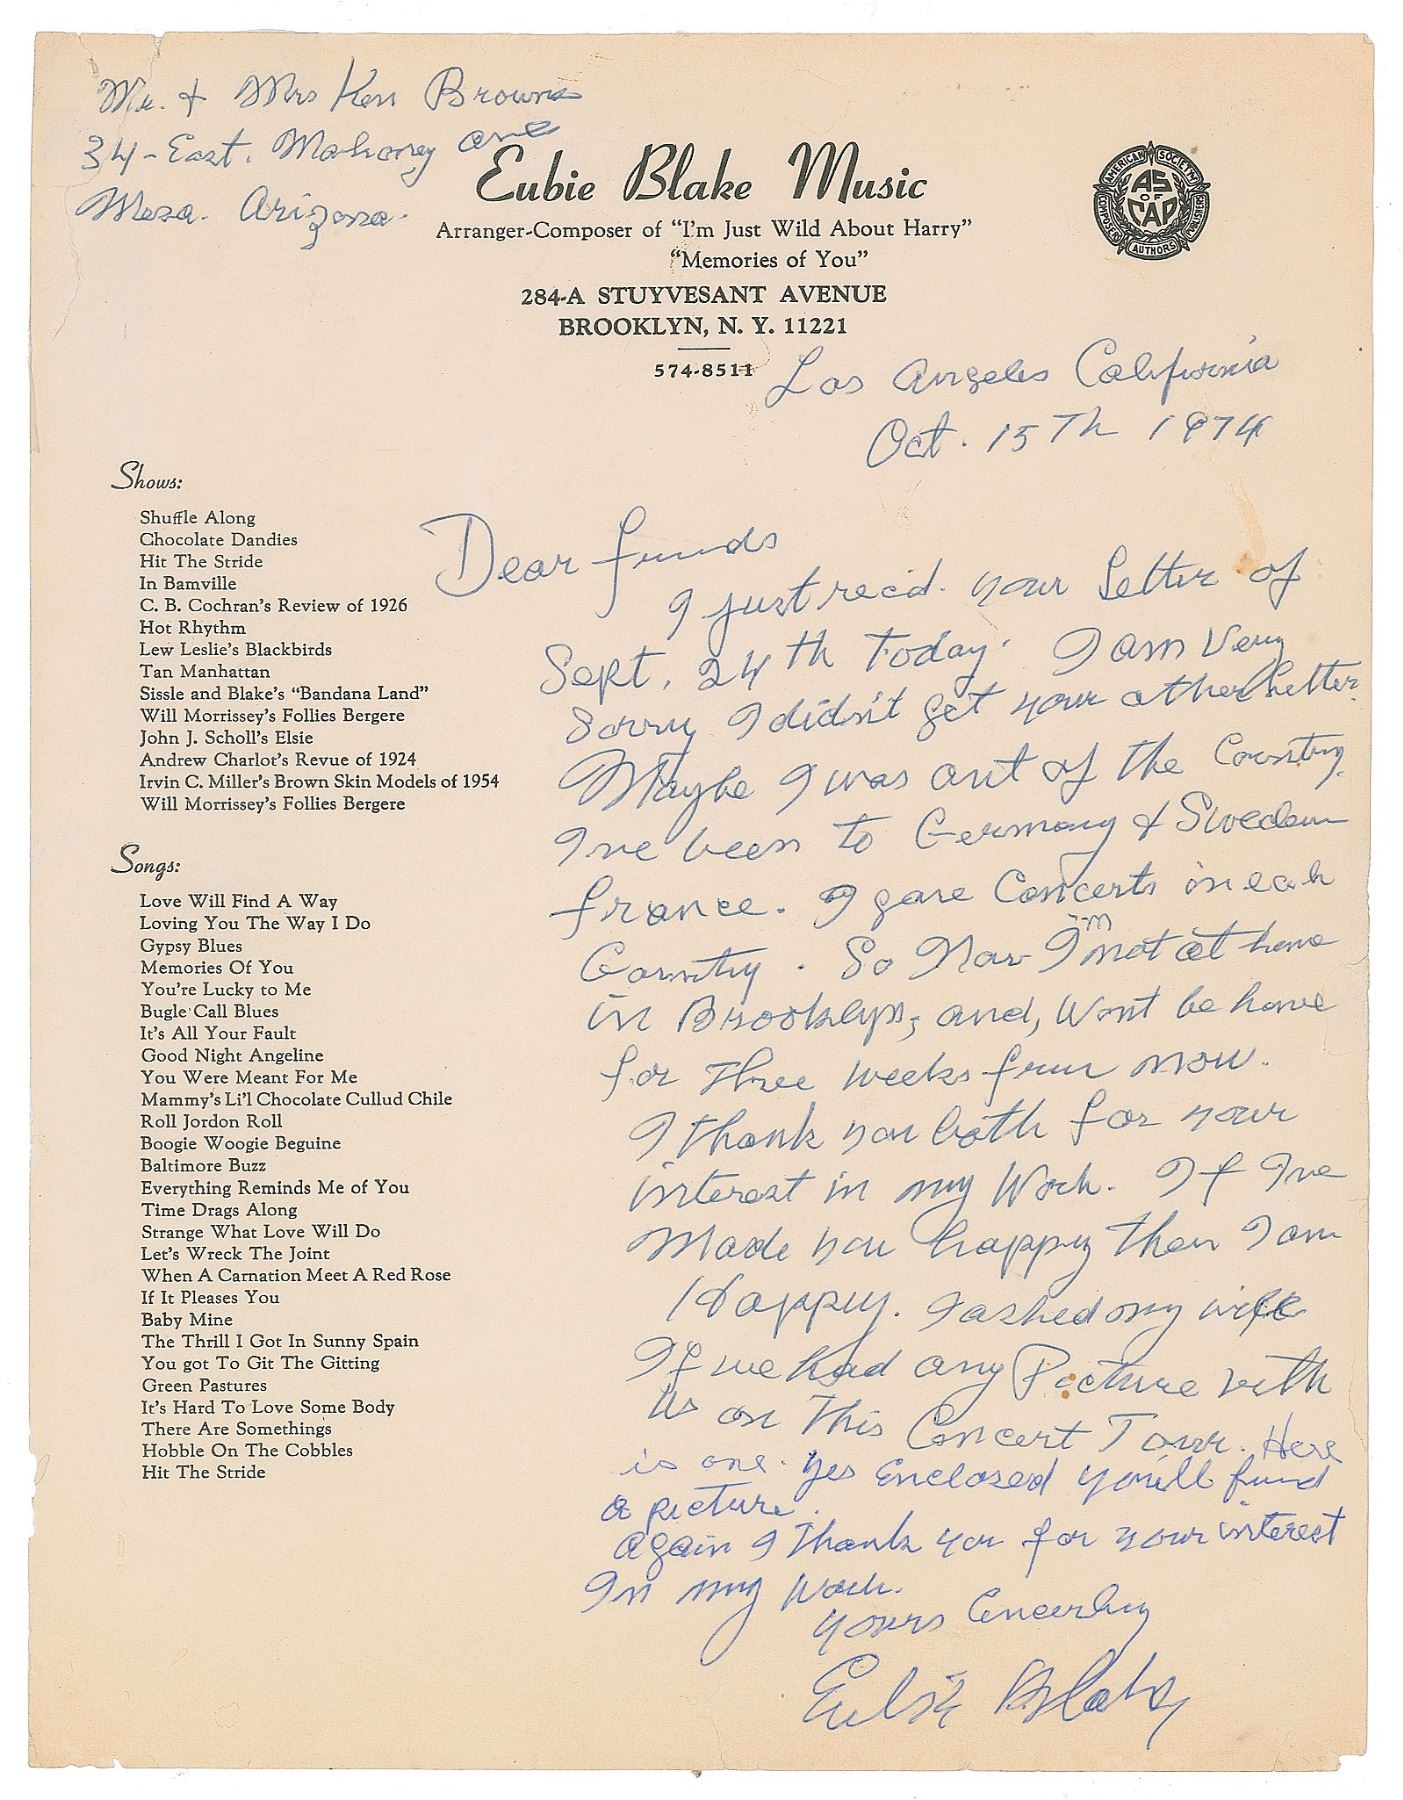 Mr. + Mrs Ken Browne
34-East. Mahoney ave
Mesa. Arizona.
Eubie Blake Music
Arranger-Composer of “I'm Just Wild About Harry”
“Memories of You”
284-A STUYVESANT AVENUE
BROOKLYN, N. Y. 11221
574-8511
AMERICAN SOCIETY
COMPOSERS
AS
OF
CAP
AUTHORS
PUBLISHERS
Los Angeles California
Oct. 15Th 1974
Shows:
Shuffle Along
Chocolate Dandies
Hit The Stride
In Bamville
C. B. Cochran's Review of 1926
Hot Rhythm
Lew Leslie's Blackbirds
Tan Manhattan
Sissle and Blake's “Bandana Land”
Will Morrissey's Follies Bergere
John J. Scholl's Elsie
Andrew Charlot's Revue of 1924
Irvin C. Miller's Brown Skin Models of 1954
Will Morrissey's Follies Bergere
Songs:
Love Will Find A Way
Loving You The Way I Do
Gypsy Blues
Memories Of You
You're Lucky to Me
Bugle Call Blues
It's All Your Fault
Good Night Angeline
You Were Meant For Me
Mammy's Li'l Chocolate Cullud Chile
Roll Jordon Roll
Boogie Woogie Beguine
Baltimore Buzz
Everything Reminds Me of You
Time Drags Along
Strange What Love Will Do
Let's Wreck The Joint
When A Carnation Meet A Red Rose
If It Pleases You
Baby Mine
The Thrill I Got In Sunny Spain
You got To Git The Gitting
Green Pastures
It's Hard To Love Some Body
There Are Somethings
Hobble On The Cobbles
Hit The Stride
Dear friends
I just rec'd. your Letter of
Sept. 24th Today. I am Very
Sorry I didn't get your other Letter.
Maybe I was out of the Country.
I've been to Germany & Sweden
france. I gave Concerts in each
Country. So Now I'm not at home
in Brooklyn, and, Won't be home
for Three weeks from now.
I thank you both for your
interest in my Work. If I've
Made you happy then I am
Happy. I asked my wife
If we had any Picture with
us on This Concert Tour. Here
is one. yes Enclosed you'll find
a picture.
again I Thank you for your interest
In my work.
yours Cencerley
Eubie Blake